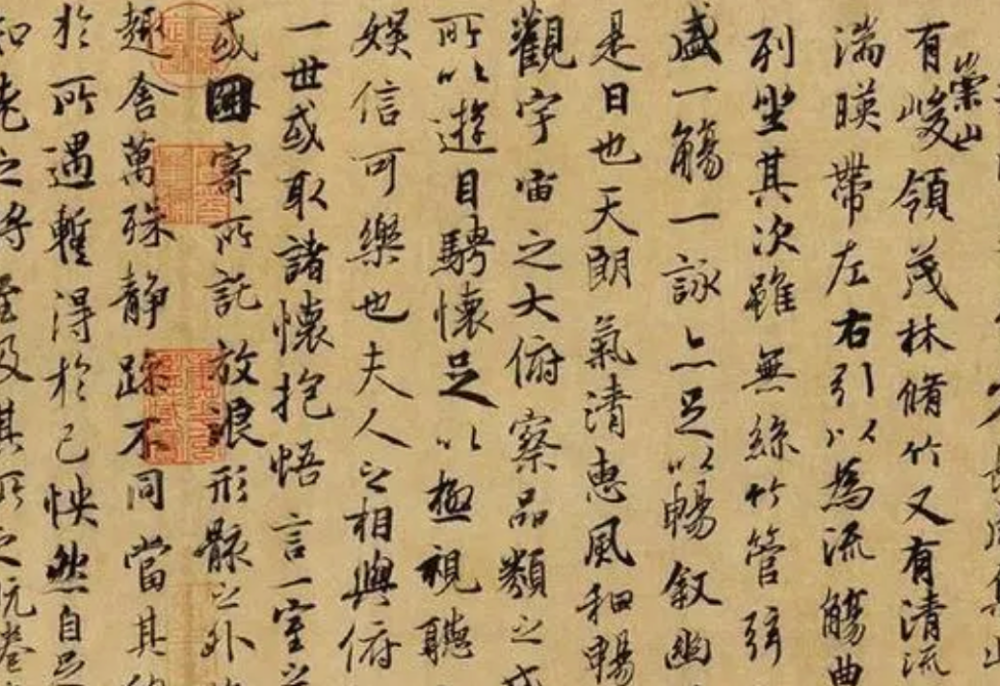 有崇山峻領茂林脩竹又有清流
湍暎帶左右引以為流觴曲
列坐其次雖無絲竹管弦
盛一觴一詠亦足以暢敘幽
是日也天朗氣清惠風和暢
觀宇宙之大俯察品類之
所以遊目騁懷足以極視聽
娛信可樂也夫人之相與俯
一世或取諸懷抱悟言一室之
或因寄所託放浪形骸之外
趣舍萬殊靜躁不同當其
於所遇暫得於己怏然自足
知老之將至及其所之既惓